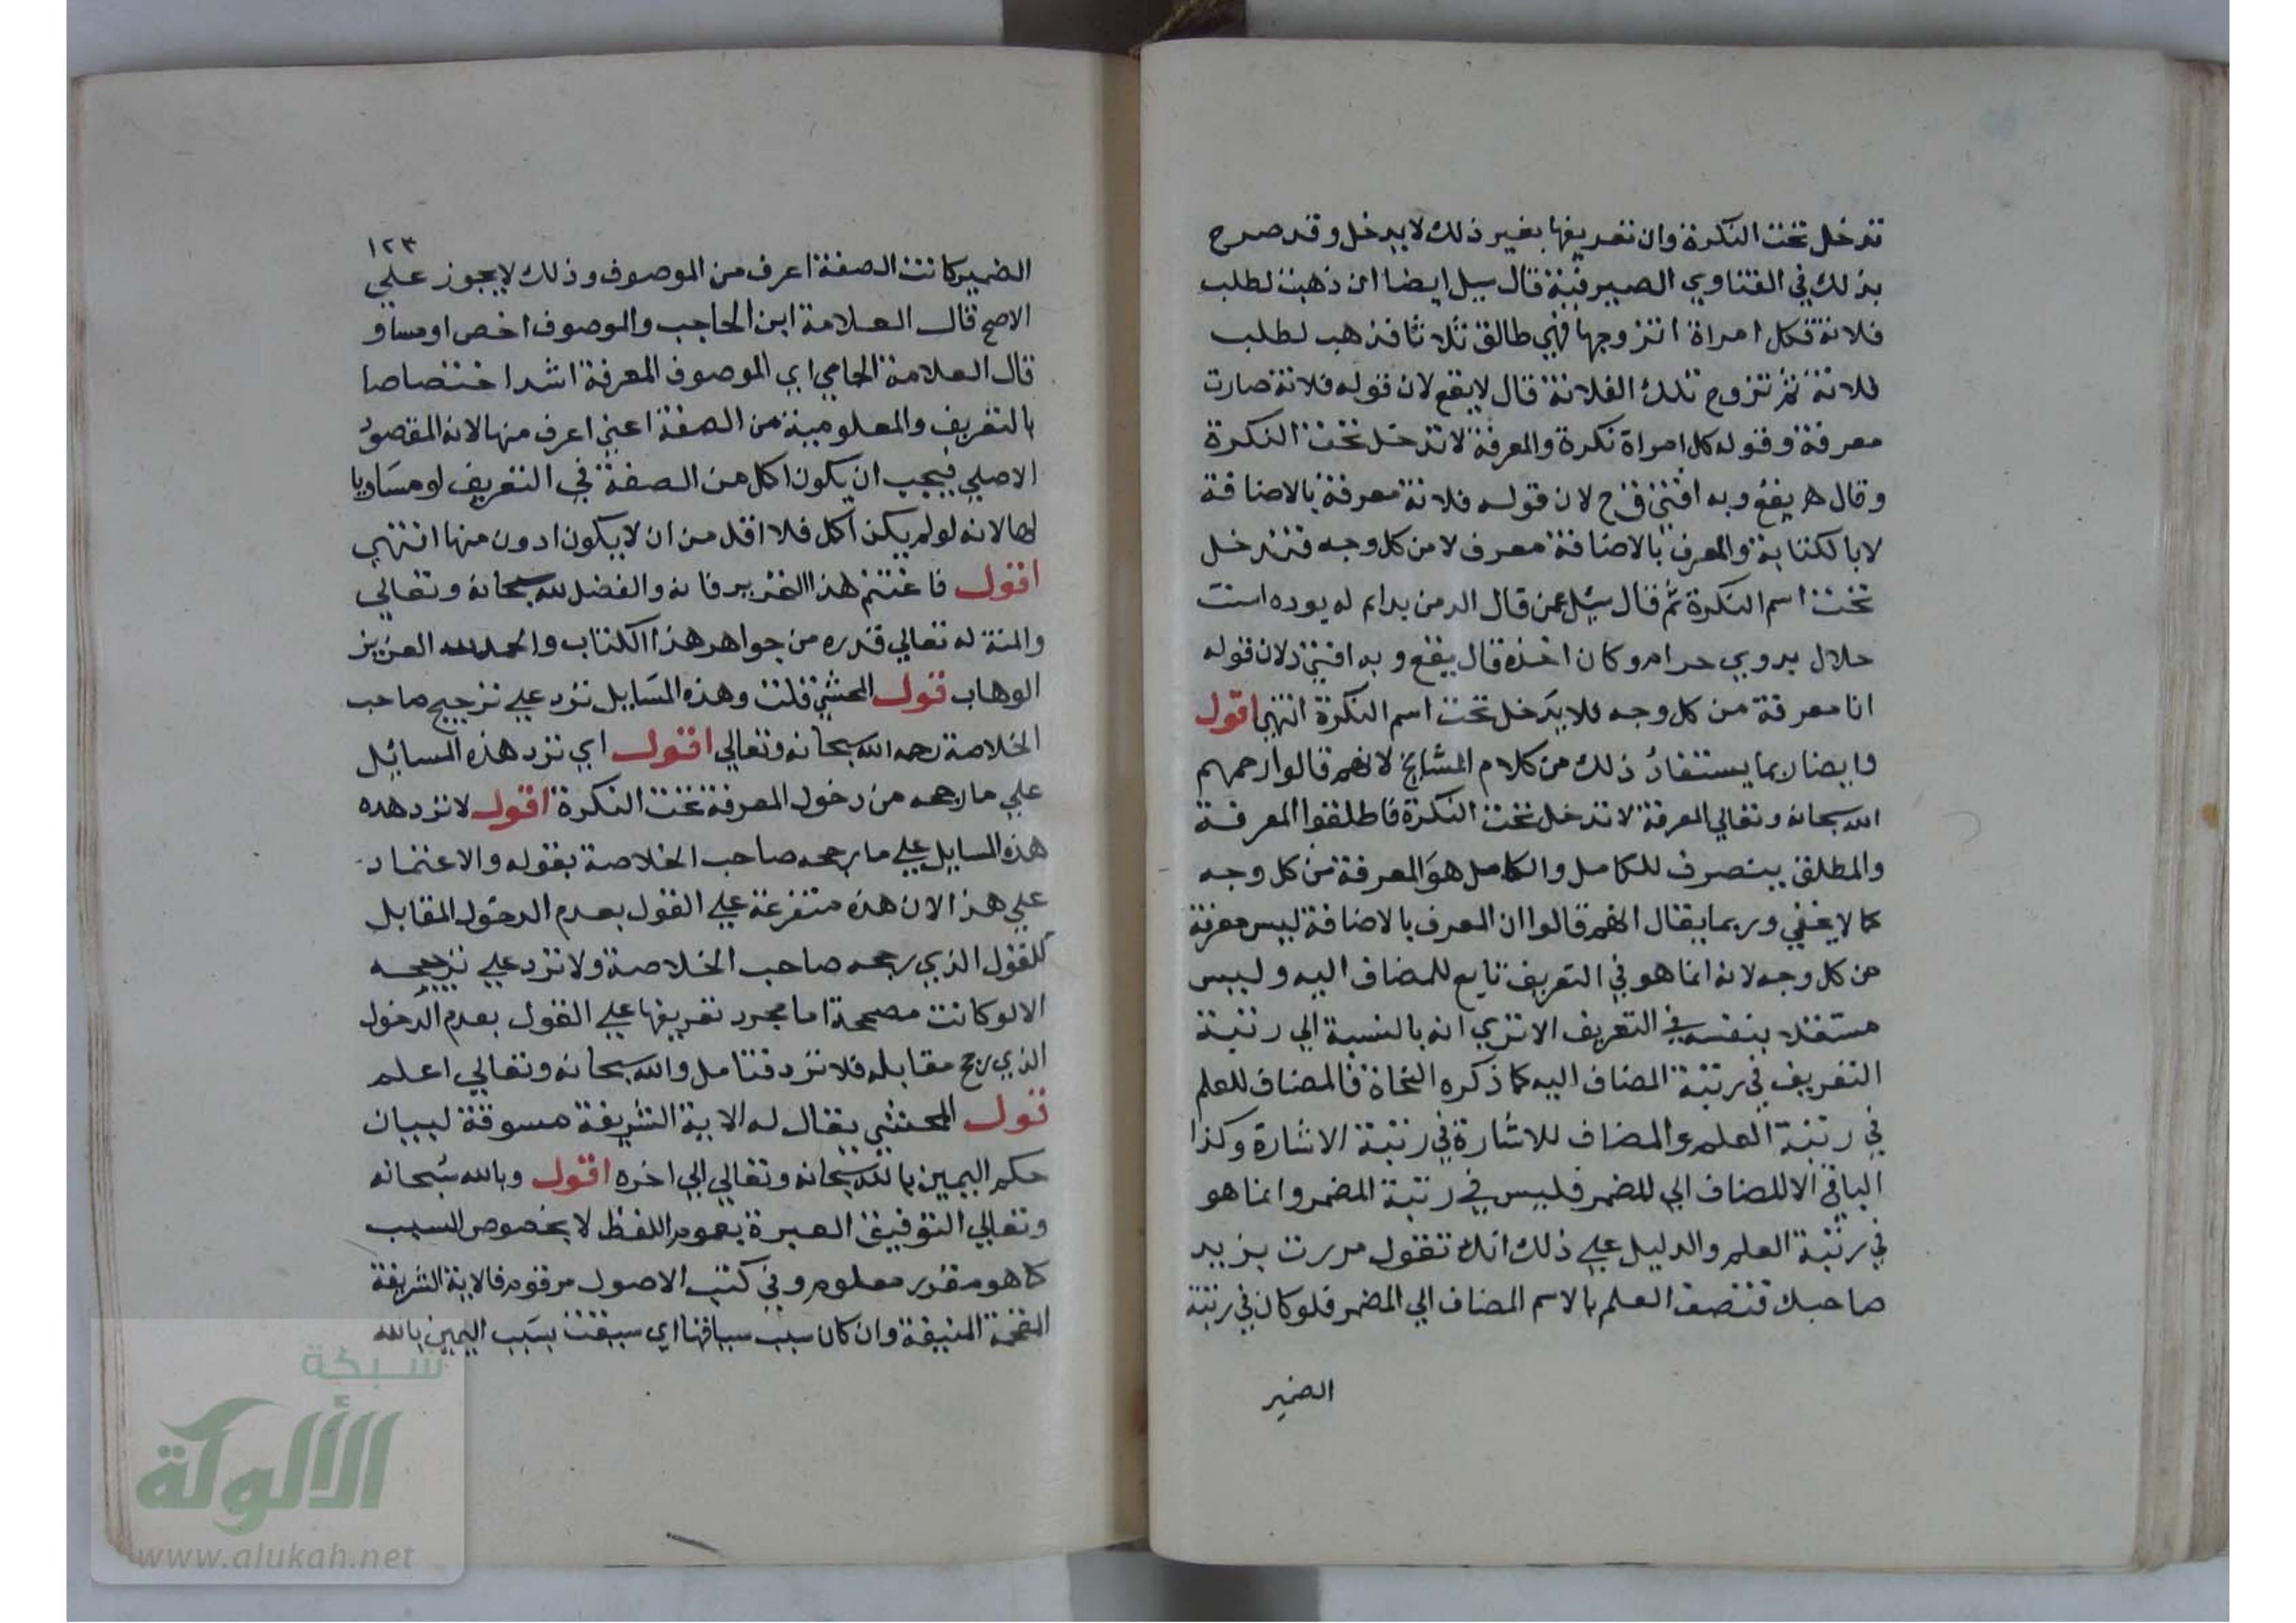 تدخل تحت النكرة وان تعريفها بغير ذلك لا يدخل وقد صرح
بذلك في الفتاوي الصيرفية قال سيل ايضا ان ذهبت لطلب
فلانة فكل امراة اتزوجها فهي طالق ثلاثا فذهب لطلب
فلانة ثم تزوج تلك الفلانة قال لا يقع لان قوله فلانة صارت
معرفة وقوله كل امراة نكرة والمعرفة لا تدخل تحت النكرة
وقال هر يقع وبه افتى قخ لان قوله فلانة معرفة بالاضافة
لا بالكتابة والمعرف بالاضافة معرف لا من كل وجه فتدخل
تحت اسم النكرة ثم قال سئل عن قال الر من بدام له يوده است
حلال بروي حرام وكان اخذه قال يقع وبه افتى لان قوله
انا معرفة من كل وجه فلا يدخل تحت اسم النكرة انتهى اقول
وايضا ربما يستفاد ذلك من كلام المشايخ لانهم قالوا رحمهم
الله سبحانه وتعالي المعرفة لا تدخل تحت النكرة فاطلقوا المعرفة
والمطلق ينصرف للكامل والكامل هو المعرفة من كل وجه
كما لا يخفي وربما يقال انهم قالوا ان المعرف بالاضافة ليس معرفة
من كل وجه لانه انما هو في التعريف تابع للمضاف اليه وليس
مستقلا بنفسه في التعريف الا تري انه بالنسبة الي رتبة
التعريف في رتبة المضاف اليه كما ذكره النحاة فالمضاف للعلم
في رتبة العلم والمضاف للاشارة في رتبة الاشارة وكذا
الباقي الا للمضاف الي للضمر فليس في رتبة المضمر وانما هو
في رتبة العلم والدليل علي ذلك انك تقول مررت بزيد
صاحبك فتصف العلم بالاسم المضاف الي المضمر فلو كان في رتبة
الضمير
١٢٣
الضمير كانت الصفة اعرف من الموصوف وذلك لا يجوز علي
الاصح قال العلامة ابن الحاجب والموصوف اخص او مساو
قال العلامة الجامي اي الموصوف المعرفة اشد اختصاصا
بالتعريف والمعلومية من الصفة اعني اعرف منها لانه المقصود
الاصلي فيجب ان يكون اكل من الصفة في التعريف او مساويا
لها لانه لو لم يكن اكل فلا اقل من ان لا يكون ادون منها انتهي
اقول فاغتنم هذا التحرير فانه والفضل لله سبحانه وتعالي
والمنة له تعالي قدره من جواهر هذا الكتاب والحمد لله العزيز
الوهاب قول المحشي قلت وهذه المسايل ترد علي ترجيح صاحب
الخلاصة رحمه الله سبحانه وتعالي اقول اي ترد هذه المسائل
علي ما رجحه من دخول المعرفة تحت النكرة اقول لا ترد هده
هذه المسايل علي ما رجحه صاحب الخلاصة بقوله والاعتماد
علي هذا لان هذه متفرعة علي القول بعدم الدخول المقابل
للقول الذي رجحه صاحب الخلاصة ولا ترد علي ترجيحه
الا لو كانت مصححة اما مجرد تفريعها علي القول بعدم الدخول
الذي رجح مقابله فلا ترد فتامل والله سبحانه وتعالي اعلم
قول المحشي يقال له الاية الشريفة مسوقة لبيان
حكم اليمين بالله سبحانه وتعالي الي اخره اقول وبالله سبحانه
وتعالي التوفيق العبرة بعموم اللفظ لا بخصوص السبب
كا هو مقرر معلوم وفي كتب الاصول مرقوم فالاية الشريفة
الفخمة المنيفة وان كان سبب سياقها اي سيقت بسبب اليمين بالله
شبكة
الألوكة
www.alukah.net